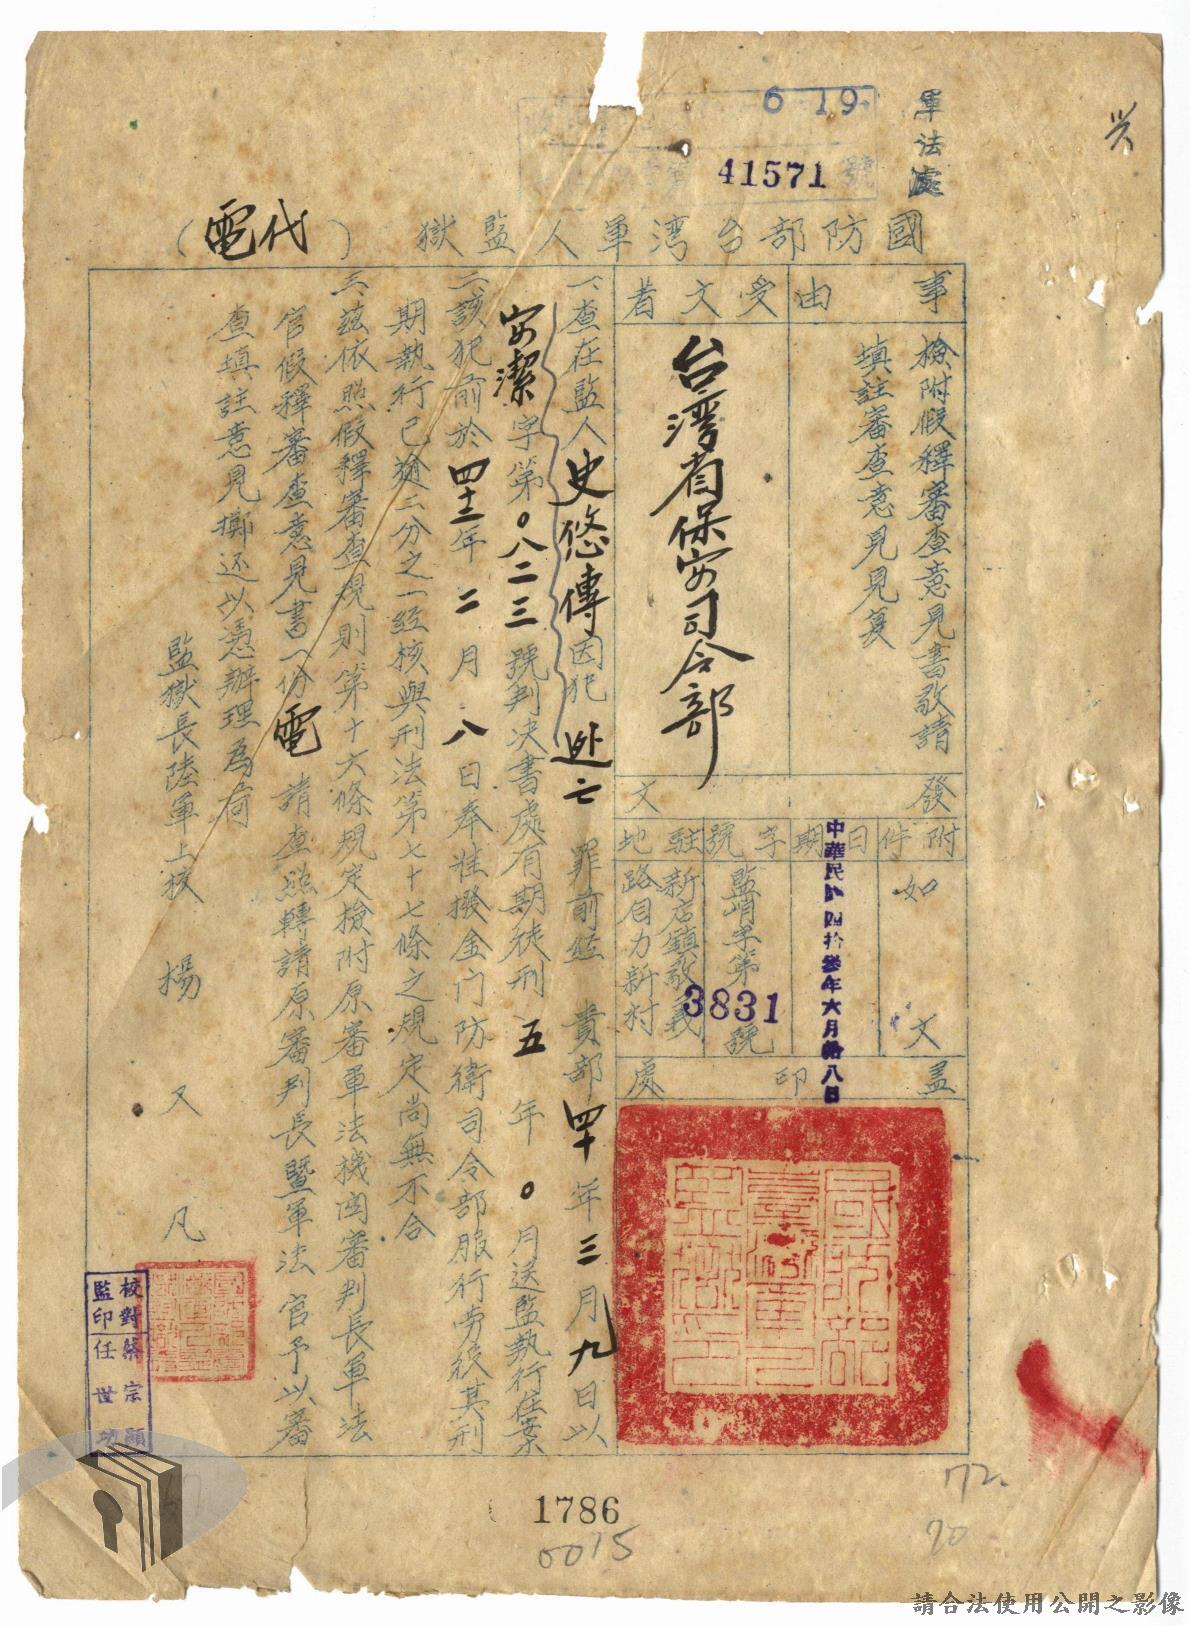 軍法處
6 19
41571 號
國防部台湾軍人監獄（代電）
事由
檢附假釋審查意見書敬請
填註審查意見見复
受文者
台湾省保安司令部
發文
附件
如文
日期
中華民國四拾叁年六月拾八日
字號
監啃字第3831號
駐地
新店鎮敬義
路自力新村
蓋印處
一、查在監人史悠傳因犯逃亡罪前經 貴部四十年三月九日以
安潔字第〇八二三號判决書處有期徒刑五年〇月送監執行在案
二、該犯前於四十二年二月八日奉准撥金门防衛司令部服行劳役其刑
期執行已逾二分之一經核與刑法第七十七條之規定尚無不合
三、茲依照假釋審查規則第十六條規定檢附原審軍法機関審判長軍法
官假釋審查意見書一份電請查照轉請原審判長暨軍法官予以審
查填註意見擲还以憑辦理為荷
監獄長陸軍上校 楊又凡
校對 蔡宗顯
監印 任世功
1786
0015
172.
70
請合法使用公開之影像